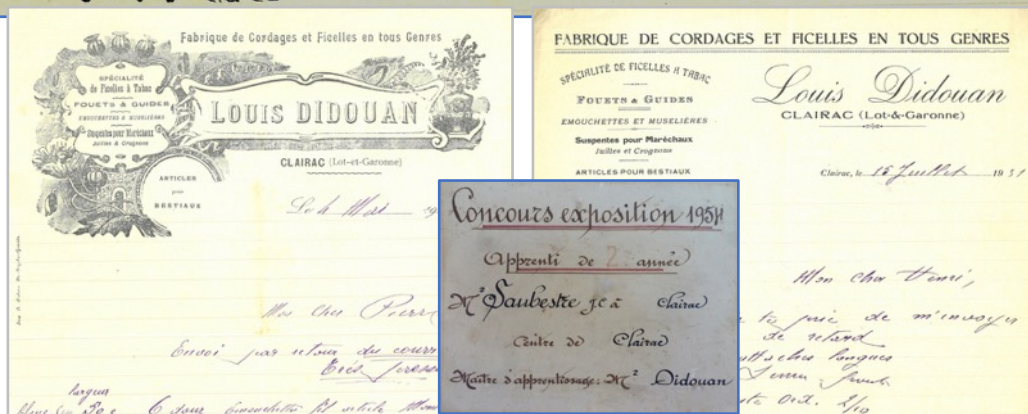 Fabrique de Cordages et Ficelles en tous Genres
SPÉCIALITÉ
de Ficelles à Tabac
FOUETS & GUIDES
EMOUCHETTES & MUSELIÈRES
Suspentes pour Maréchaux
Juilles & Crognons
ARTICLES
pour
BESTIAUX
LOUIS DIDOUAN
CLAIRAC (Lot-et-Garonne)
Le 4 Mars 19
Mon cher Pierre
Envoi par retour du courr
Très presse
largeur
FABRIQUE DE CORDAGES ET FICELLES EN TOUS GENRES
SPÉCIALITÉ DE FICELLES A TABAC
FOUETS & GUIDES
EMOUCHETTES ET MUSELIÈRES
Suspentes pour Maréchaux
Juilles et Crognons
ARTICLES POUR BESTIAUX
Louis Didouan
CLAIRAC (Lot-&-Garonne)
Clairac, le 15 Juillet 1931
Mon cher Henri,
te prie de m'envoyer
de retard
attaches longues
Concours exposition 1954
Apprenti de 2 année
Mr Saubestre J.C à Clairac
Centre de Clairac
Maître d'apprentissage: Mr Didouan